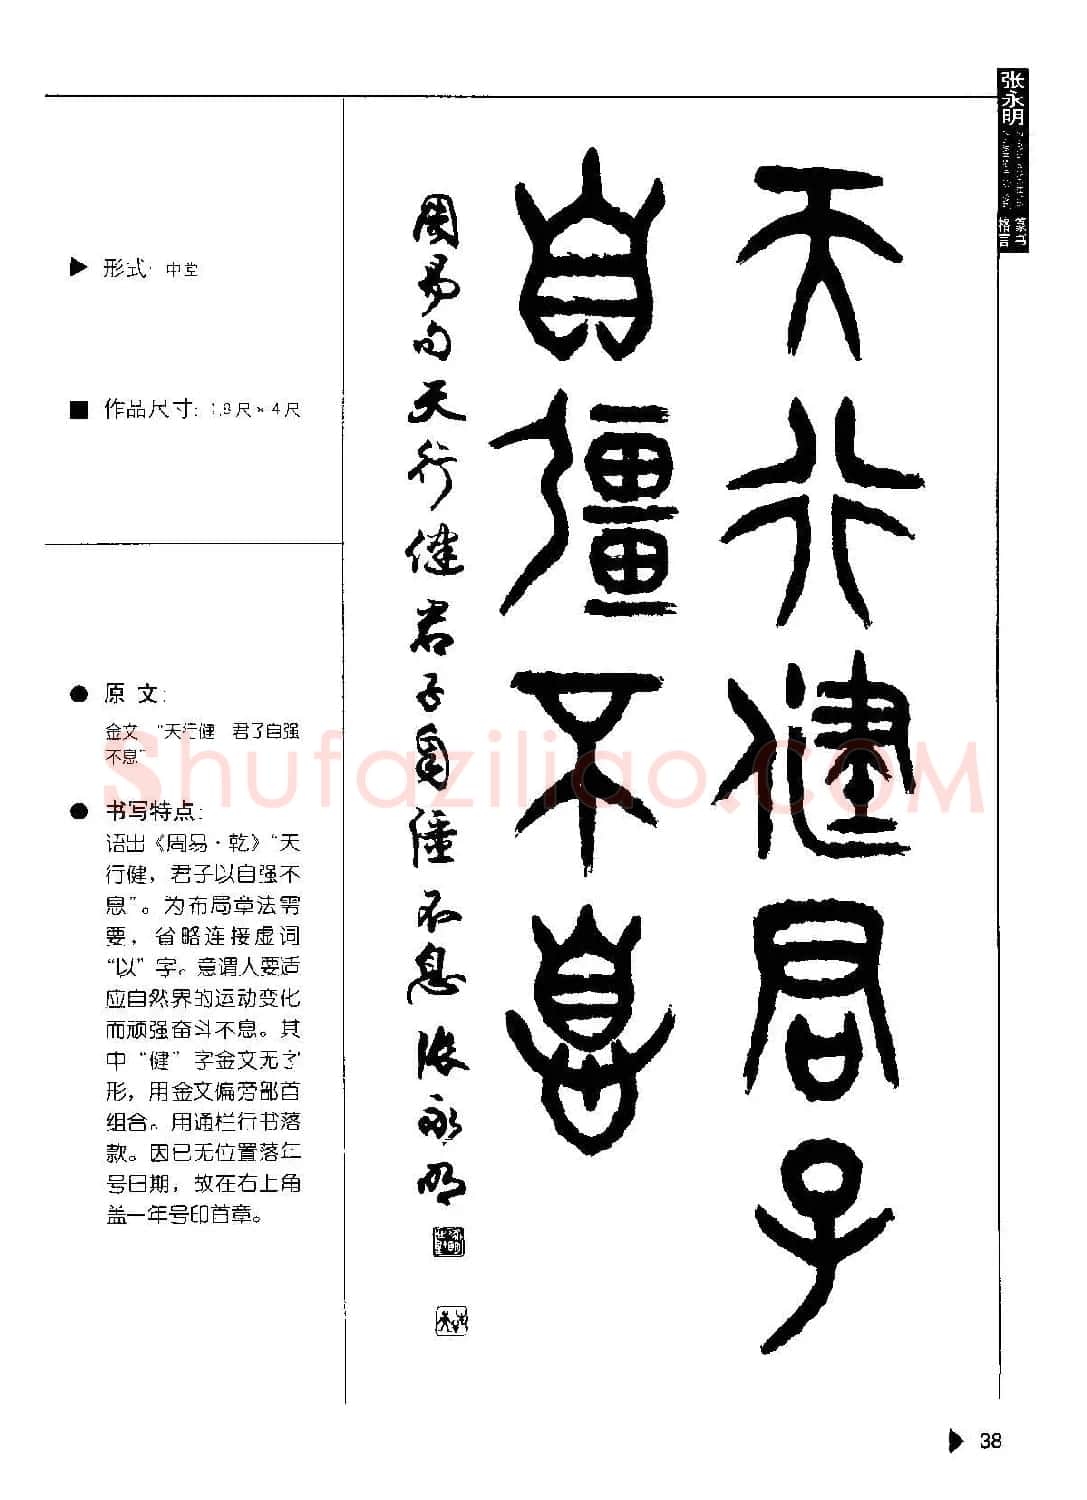 张永明
篆书
格言
天行健君子
自彊不息
周易句天行健君子自彊不息张永明
形式：中堂
作品尺寸：1.8尺×4尺
原 文：
金文 “天行健 君子自强
不息”
书写特点：
语出《周易·乾》“天
行健，君子以自强不
息”。为布局章法需
要，省略连接虚词
“以”字。意谓人要适
应自然界的运动变化
而顽强奋斗不息。其
中“健”字金文无字
形，用金文偏旁部首
组合。用通栏行书落
款。因已无位置落年
号日期，故在右上角
盖一年号印首章。
Shufaziliao.COM
38